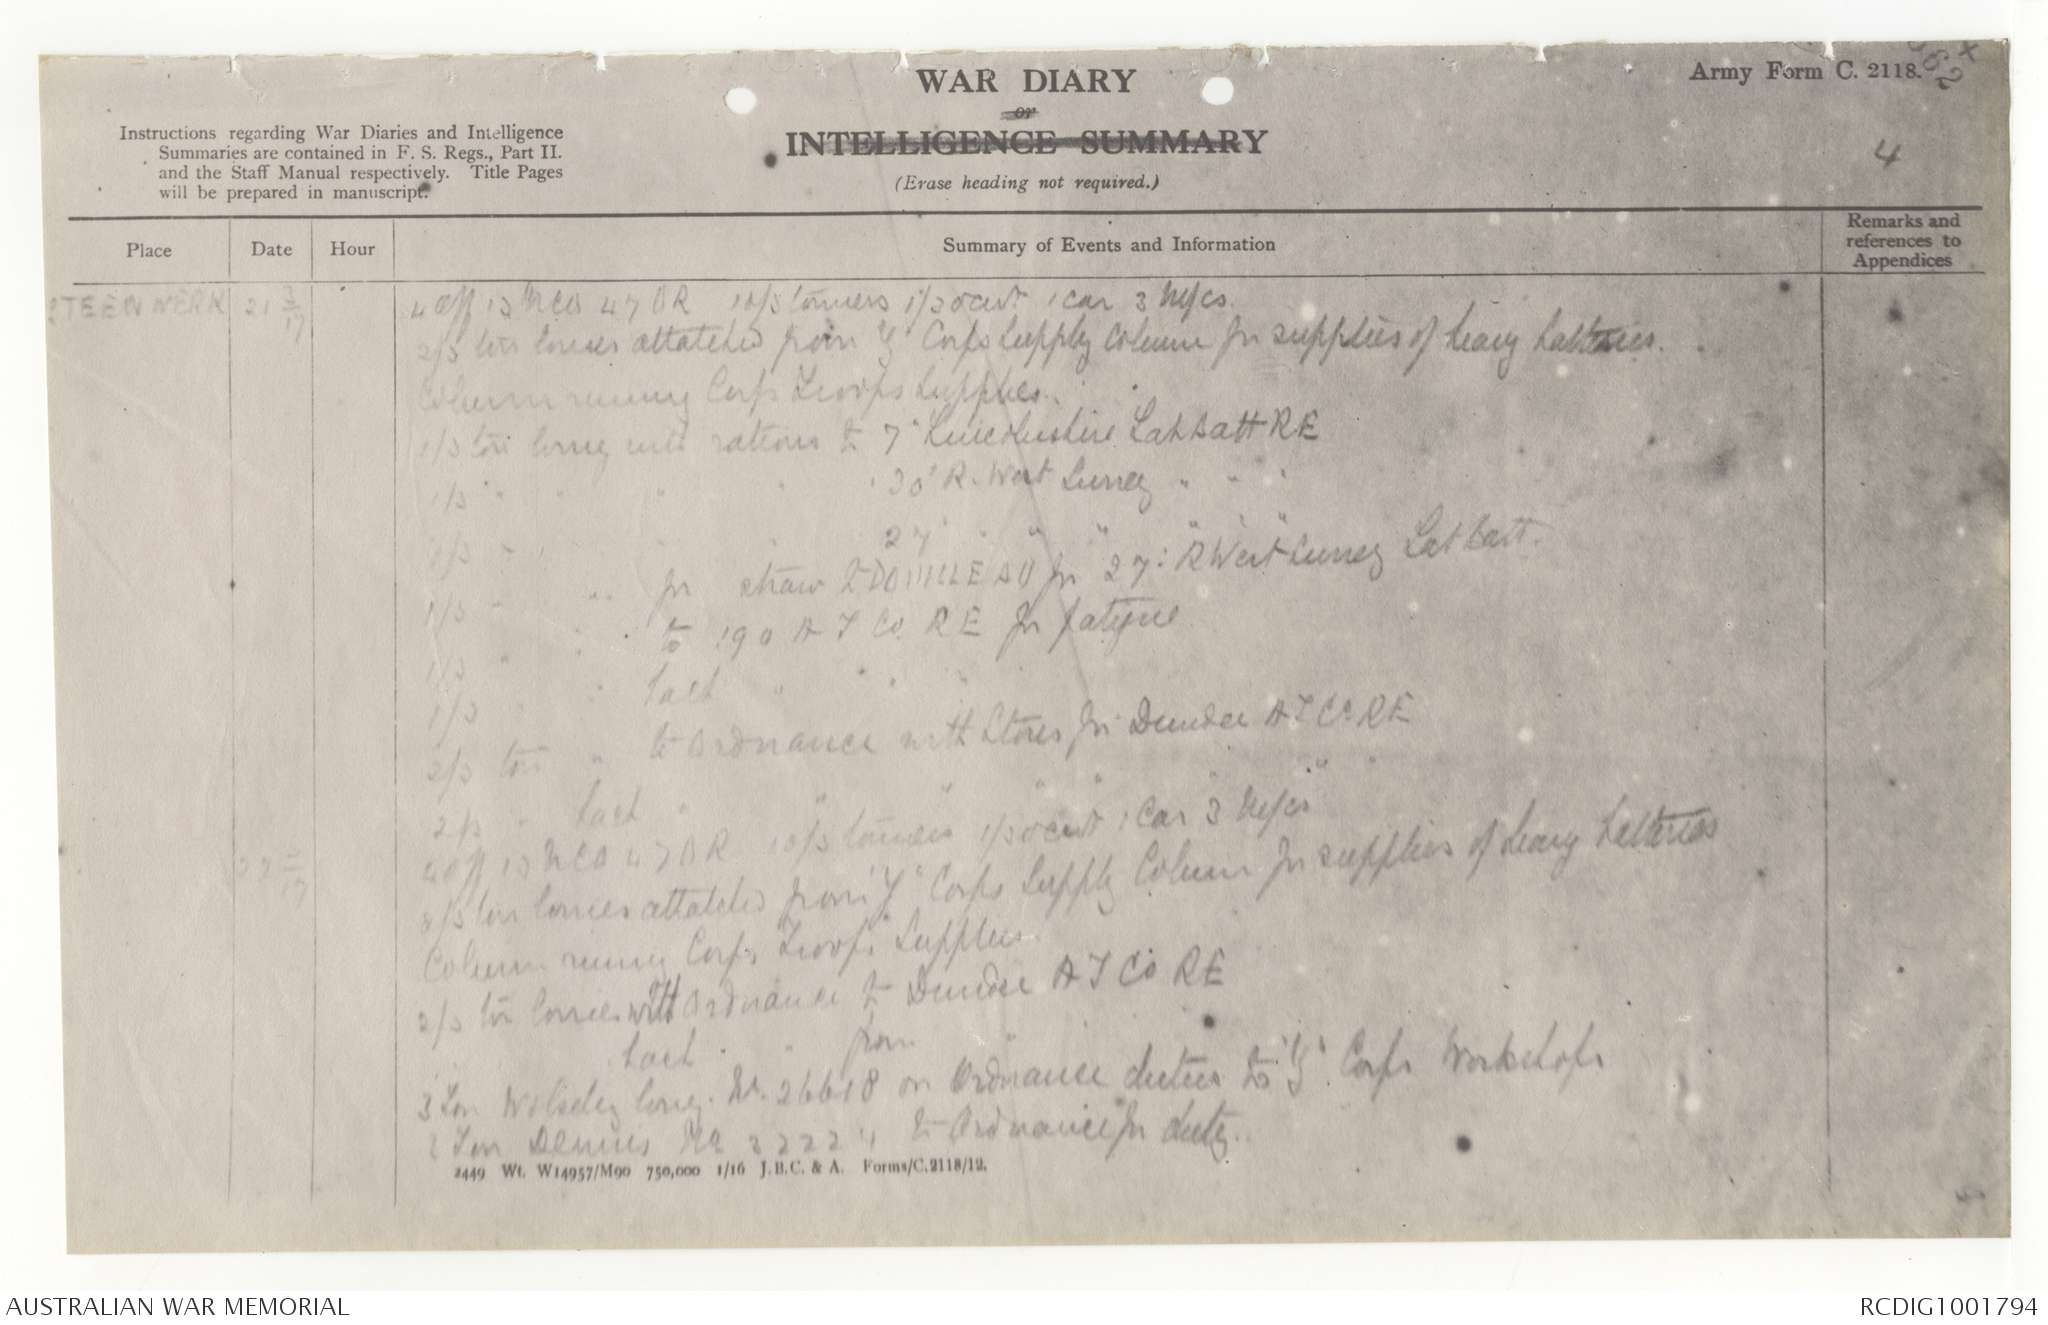 WAR DIARY
or
INTELLIGENCE SUMMARY
(Erase heading not required.)
Army Form C. 2118.
4
Instructions regarding War Diaries and Intelligence
Summaries are contained in F. S. Regs., Part II.
and the Staff Manual respectively. Title Pages
will be prepared in manuscript.
Place
Date
Hour
Summary of Events and Information
Remarks and
references to
Appendices
STEENWERK 21 3/17 4 Off 13 NCO 47 OR 10/3 tonners 1/30cwt 1 car 3 M/cs.
2/3 ton lorries attatched from "Y" Corps Supply Column for supplies of heavy batteries.
Column running Corps Troops Supplies.
1/3 ton lorry with rations to 7" Lincolnshire Lab Batt RE
1/3 " " " " 30" R. West Surrey " " "
1/3 " " " " 27 " " " " "
1/3 " " for straw to DOULLEAU for 27: R West Surrey Lab Batt.
1/3 " " to 190 A T Co RE for fatigue
1/3 " " back " " " "
2/3 ton " to Ordnance with Stores for Dundee A T Co RE
2/3 " back " " " " " "
22 3/17 4 Off 13 NCO 47 OR 10/3 tonners 1/30cwt 1 car 3 M/cs
2/3 ton lorries attatched from "Y" Corps Supply Column for supplies of heavy batteries
Column running Corps Troops Supplies.
2/3 ton lorries with Ordnance to Dundee A T Co RE
" back " " from "
3 Ton Wolseley lorry. No. 26618 on Ordnance duties to "Y" Corps Workshops
Ton Dennis No to Ordnance for duty.
2449 Wt. W14957/M90 750,000 1/16 J.B.C. & A. Forms/C.2118/12.
AUSTRALIAN WAR MEMORIAL
RCDIG1001794